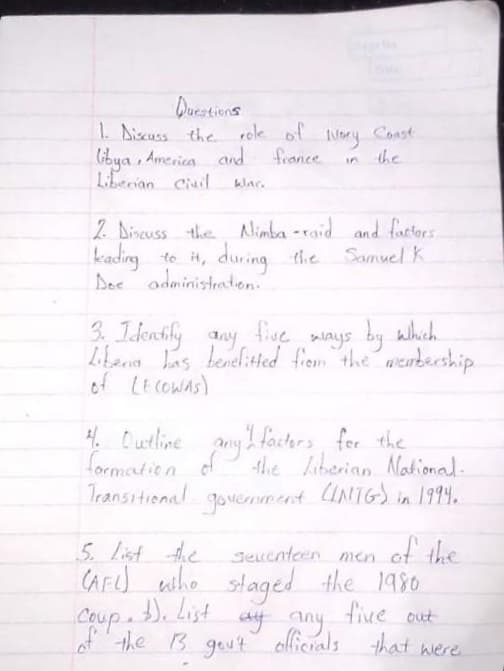 Questions
1. Discuss the role of Ivory Coast
libya, America and france in the
Liberian Civil War.
2. Discuss the Nimba-raid and factors
leading to it, during the Samuel K
Doe administration.
3. Identify any five ways by which
Liberia has benefitted from the membership
of (ECOWAS)
4. Outline any 4 factors for the
formation of the Liberian National-
Transitional government (LNTG) in 1994.
5. List the seventeen men of the
(AFL) who staged the 1980
Coup. b). List any five out
of the 13 gov't officials that were